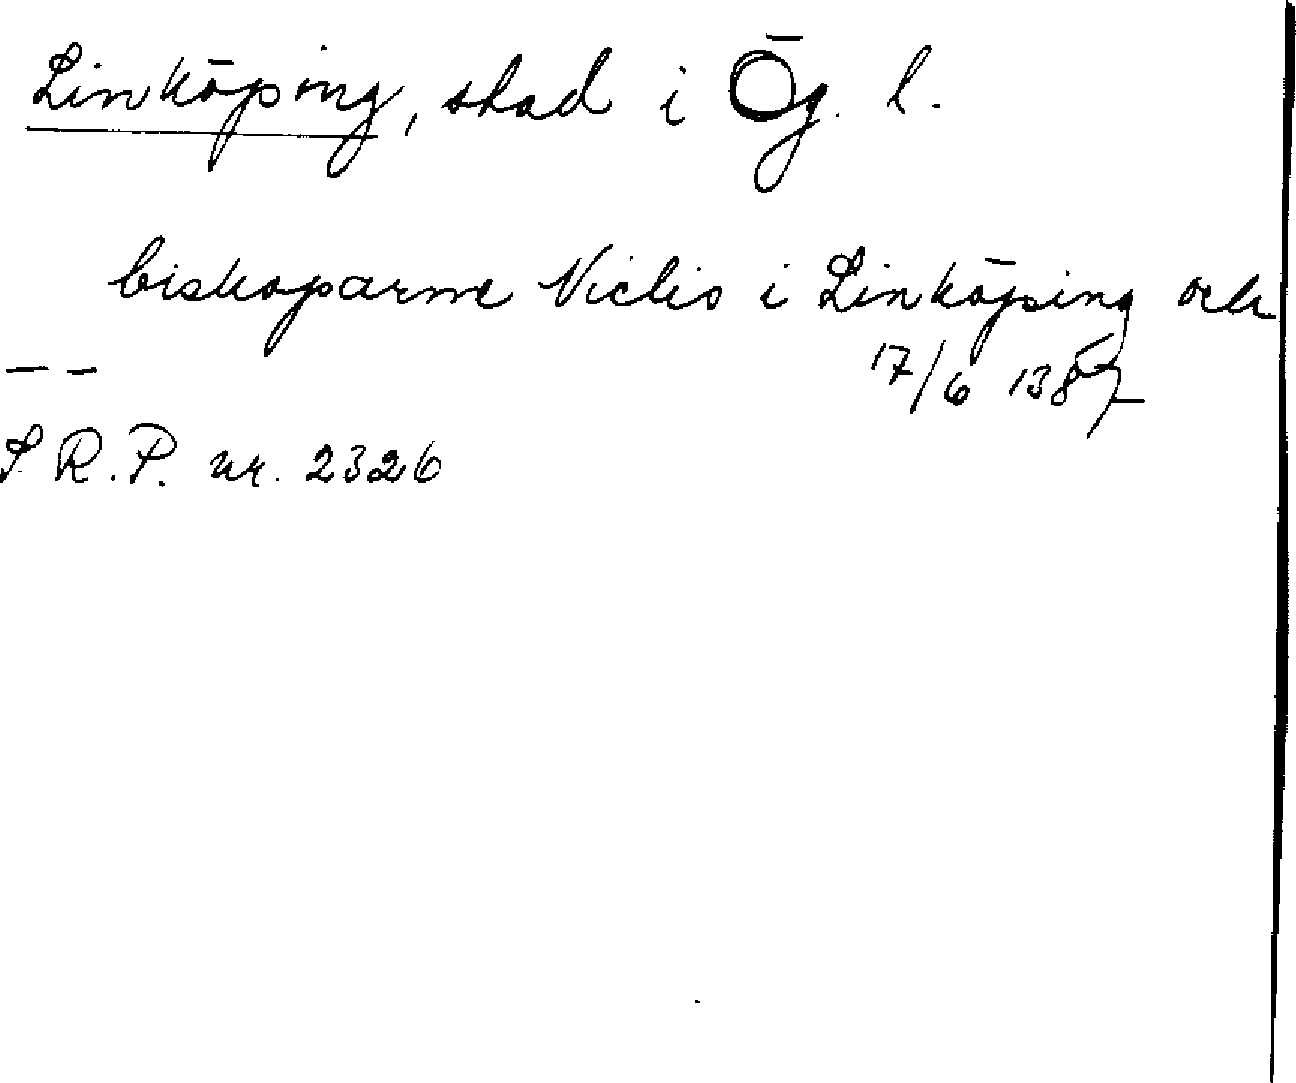 Linköping, stad i Ög. l.
biskoparne Niclis i Linköping och
17/6 1387
— —
S R.P. nr. 2326